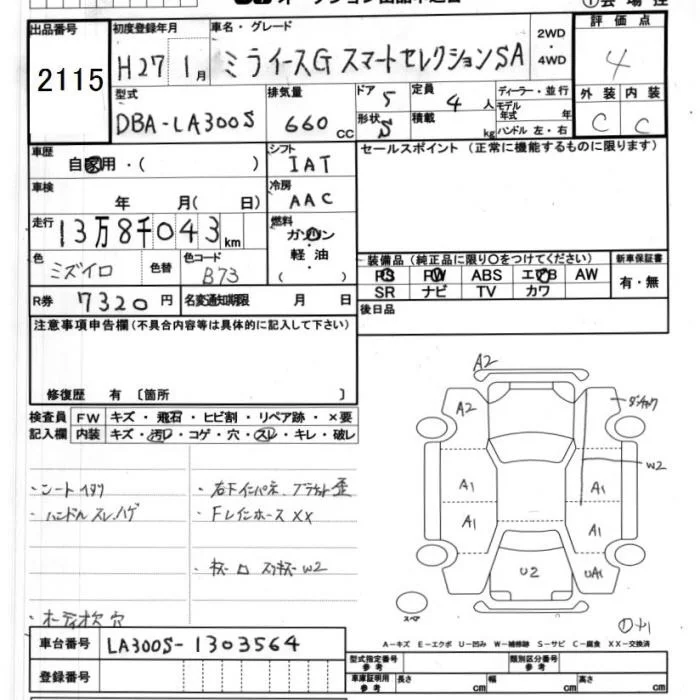 出品番号
2115
初度登録年月
H27 1月
車名・グレード
ミライースG スマートセレクションSA
2WD
・
4WD
評価点
4
型式
DBA-LA300S
排気量
660 CC
ドア 5
定員 4 人
形状 5
積載 kg
ディーラー・並行
モデル年式 年
ハンドル 左・右
外装 内装
C C
車歴
自家用・( )
シフト
IAT
セールスポイント (正常に機能するものに限ります)
車検
年 月( 日)
冷房
AAC
走行
13万8千043km
燃料
ガソリン
・
軽油
( )
色
ミズイロ
色替
色コード
B73
装備品 (純正品に限り○をつけてください)
新車保証書
PS PW ABS エアB AW
SR ナビ TV カワ
有・無
R券 7320円
名変通知期限 月 日
後日品
注意事項申告欄(不具合内容等は具体的に記入して下さい)
修復歴 有 〔箇所 〕
検査員 FW キズ・飛石・ヒビ割・リペア跡・×要
記入欄 内装 キズ・汚レ・コゲ・穴・スレ・キレ・破レ
・シートイタリ
・ハンドルスレ、ハゲ
・オーディオ欠 穴
・右下インパネ、ブラケット歪
・FレインホースXX
W2
A2
A2
W2
A1
A1
A1
A1
U2
UA1
スペア
A-キズ E-エクボ U-凹み W-補修跡 S-サビ C-腐食 XX-交換済
車台番号
LA300S-1303564
登録番号
型式指定番号
参考
類別区分番号
参考
車庫証明用
参考
長さ cm
幅 cm
高さ cm